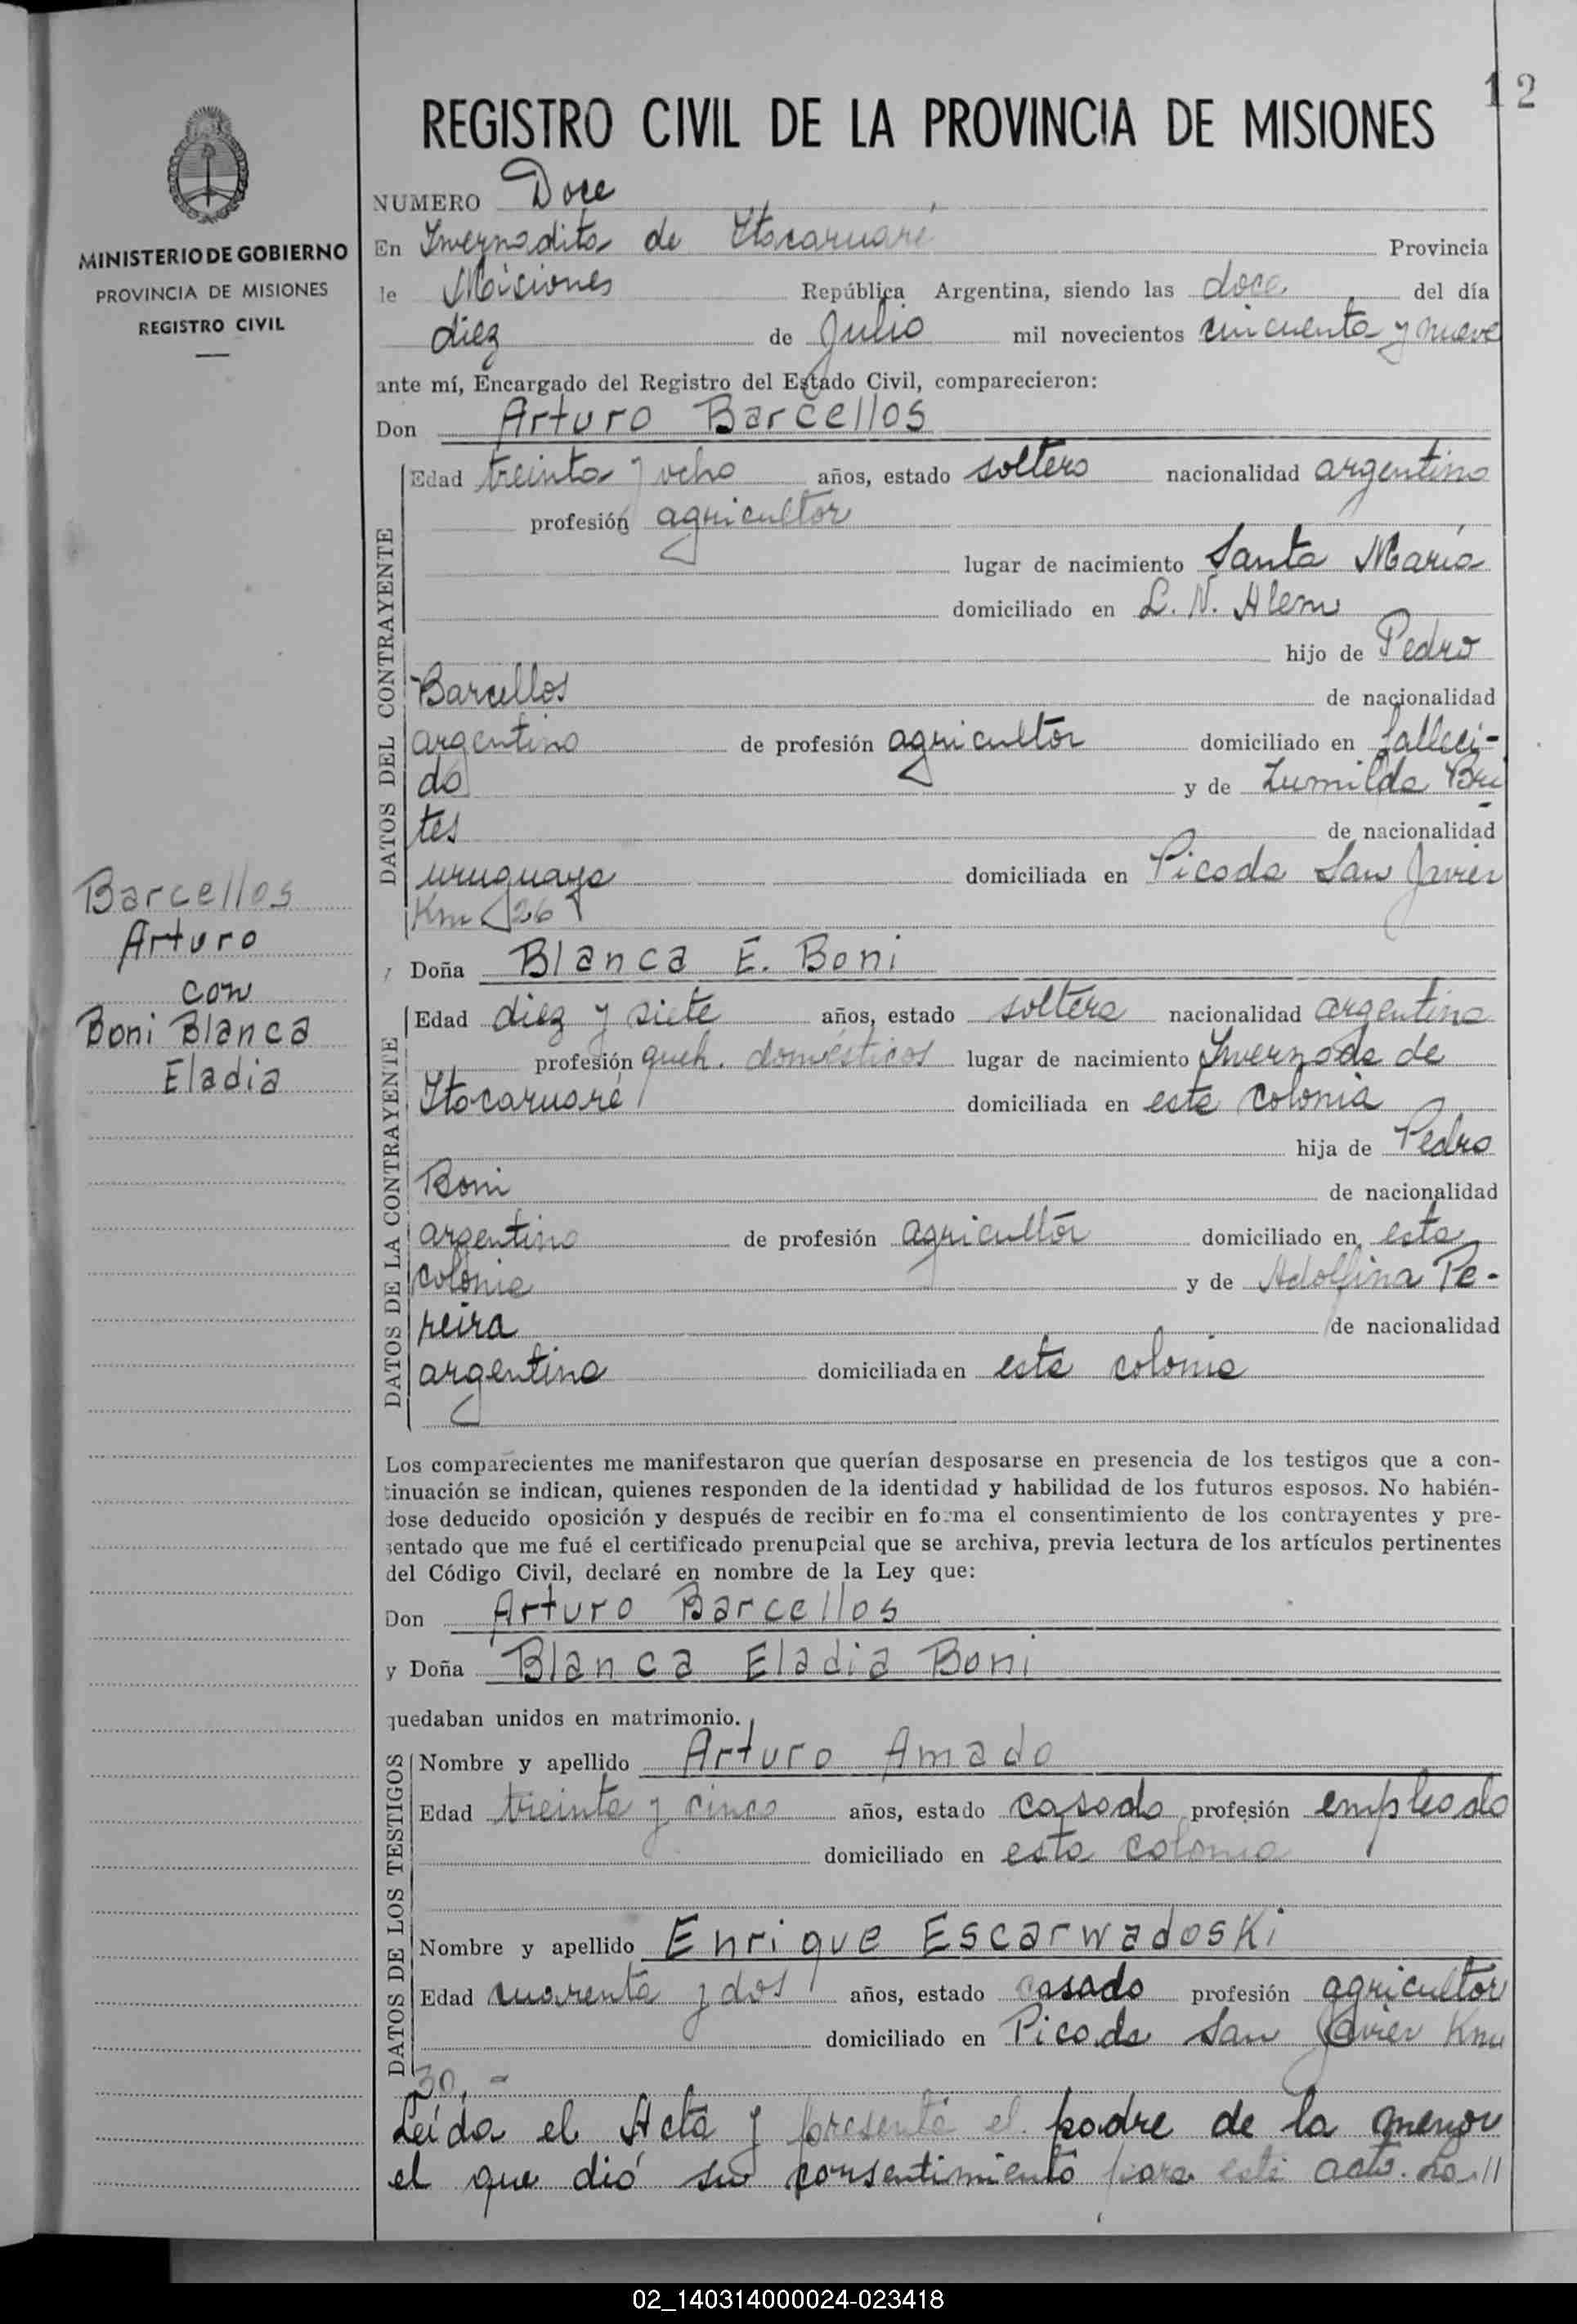 12
REGISTRO CIVIL DE LA PROVINCIA DE MISIONES
MINISTERIO DE GOBIERNO
PROVINCIA DE MISIONES
REGISTRO CIVIL
NUMERO Doce
En Invernadita de Itacaruaré Provincia
de Misiones República Argentina, siendo las doce del día
diez de Julio mil novecientos cincuenta y nueve
ante mí, Encargado del Registro del Estado Civil, comparecieron:
Don Arturo Barcellos
DATOS DEL CONTRAYENTE
Edad treinta y ocho años, estado soltero nacionalidad argentino
profesión agricultor
lugar de nacimiento Santa María
domiciliado en L. N. Alem
hijo de Pedro
Barcellos de nacionalidad
argentino de profesión agricultor domiciliado en falleci-
do y de Zumilda Bri
tes de nacionalidad
uruguaya domiciliada en Picada San Javier
Km 26
Barcellos
Arturo
con
Boni Blanca
Eladia
Doña Blanca E. Boni
DATOS DE LA CONTRAYENTE
Edad diez y siete años, estado soltera nacionalidad argentina
profesión queh. domésticos lugar de nacimiento Invernada de
Itacaruaré domiciliada en esta colonia
hija de Pedro
Boni de nacionalidad
argentino de profesión agricultor domiciliado en esta
colonia y de Adolfina Pe-
reira de nacionalidad
argentina domiciliada en esta colonia
Los comparecientes me manifestaron que querían desposarse en presencia de los testigos que a con-
tinuación se indican, quienes responden de la identidad y habilidad de los futuros esposos. No habién-
dose deducido oposición y después de recibir en forma el consentimiento de los contrayentes y pre-
sentado que me fué el certificado prenupcial que se archiva, previa lectura de los artículos pertinentes
del Código Civil, declaré en nombre de la Ley que:
Don Arturo Barcellos
y Doña Blanca Eladia Boni
quedaban unidos en matrimonio.
DATOS DE LOS TESTIGOS
Nombre y apellido Arturo Amado
Edad treinta y cinco años, estado casado profesión empleado
domiciliado en esta colonia
Nombre y apellido Enrique Escarwadoski
Edad cuarenta y dos años, estado casado profesión agricultor
domiciliado en Picada San Javier Km
30.-
Leída el Acta y presente el padre de la menor
el que dió su consentimiento para este acto. la //
02_140314000024-023418